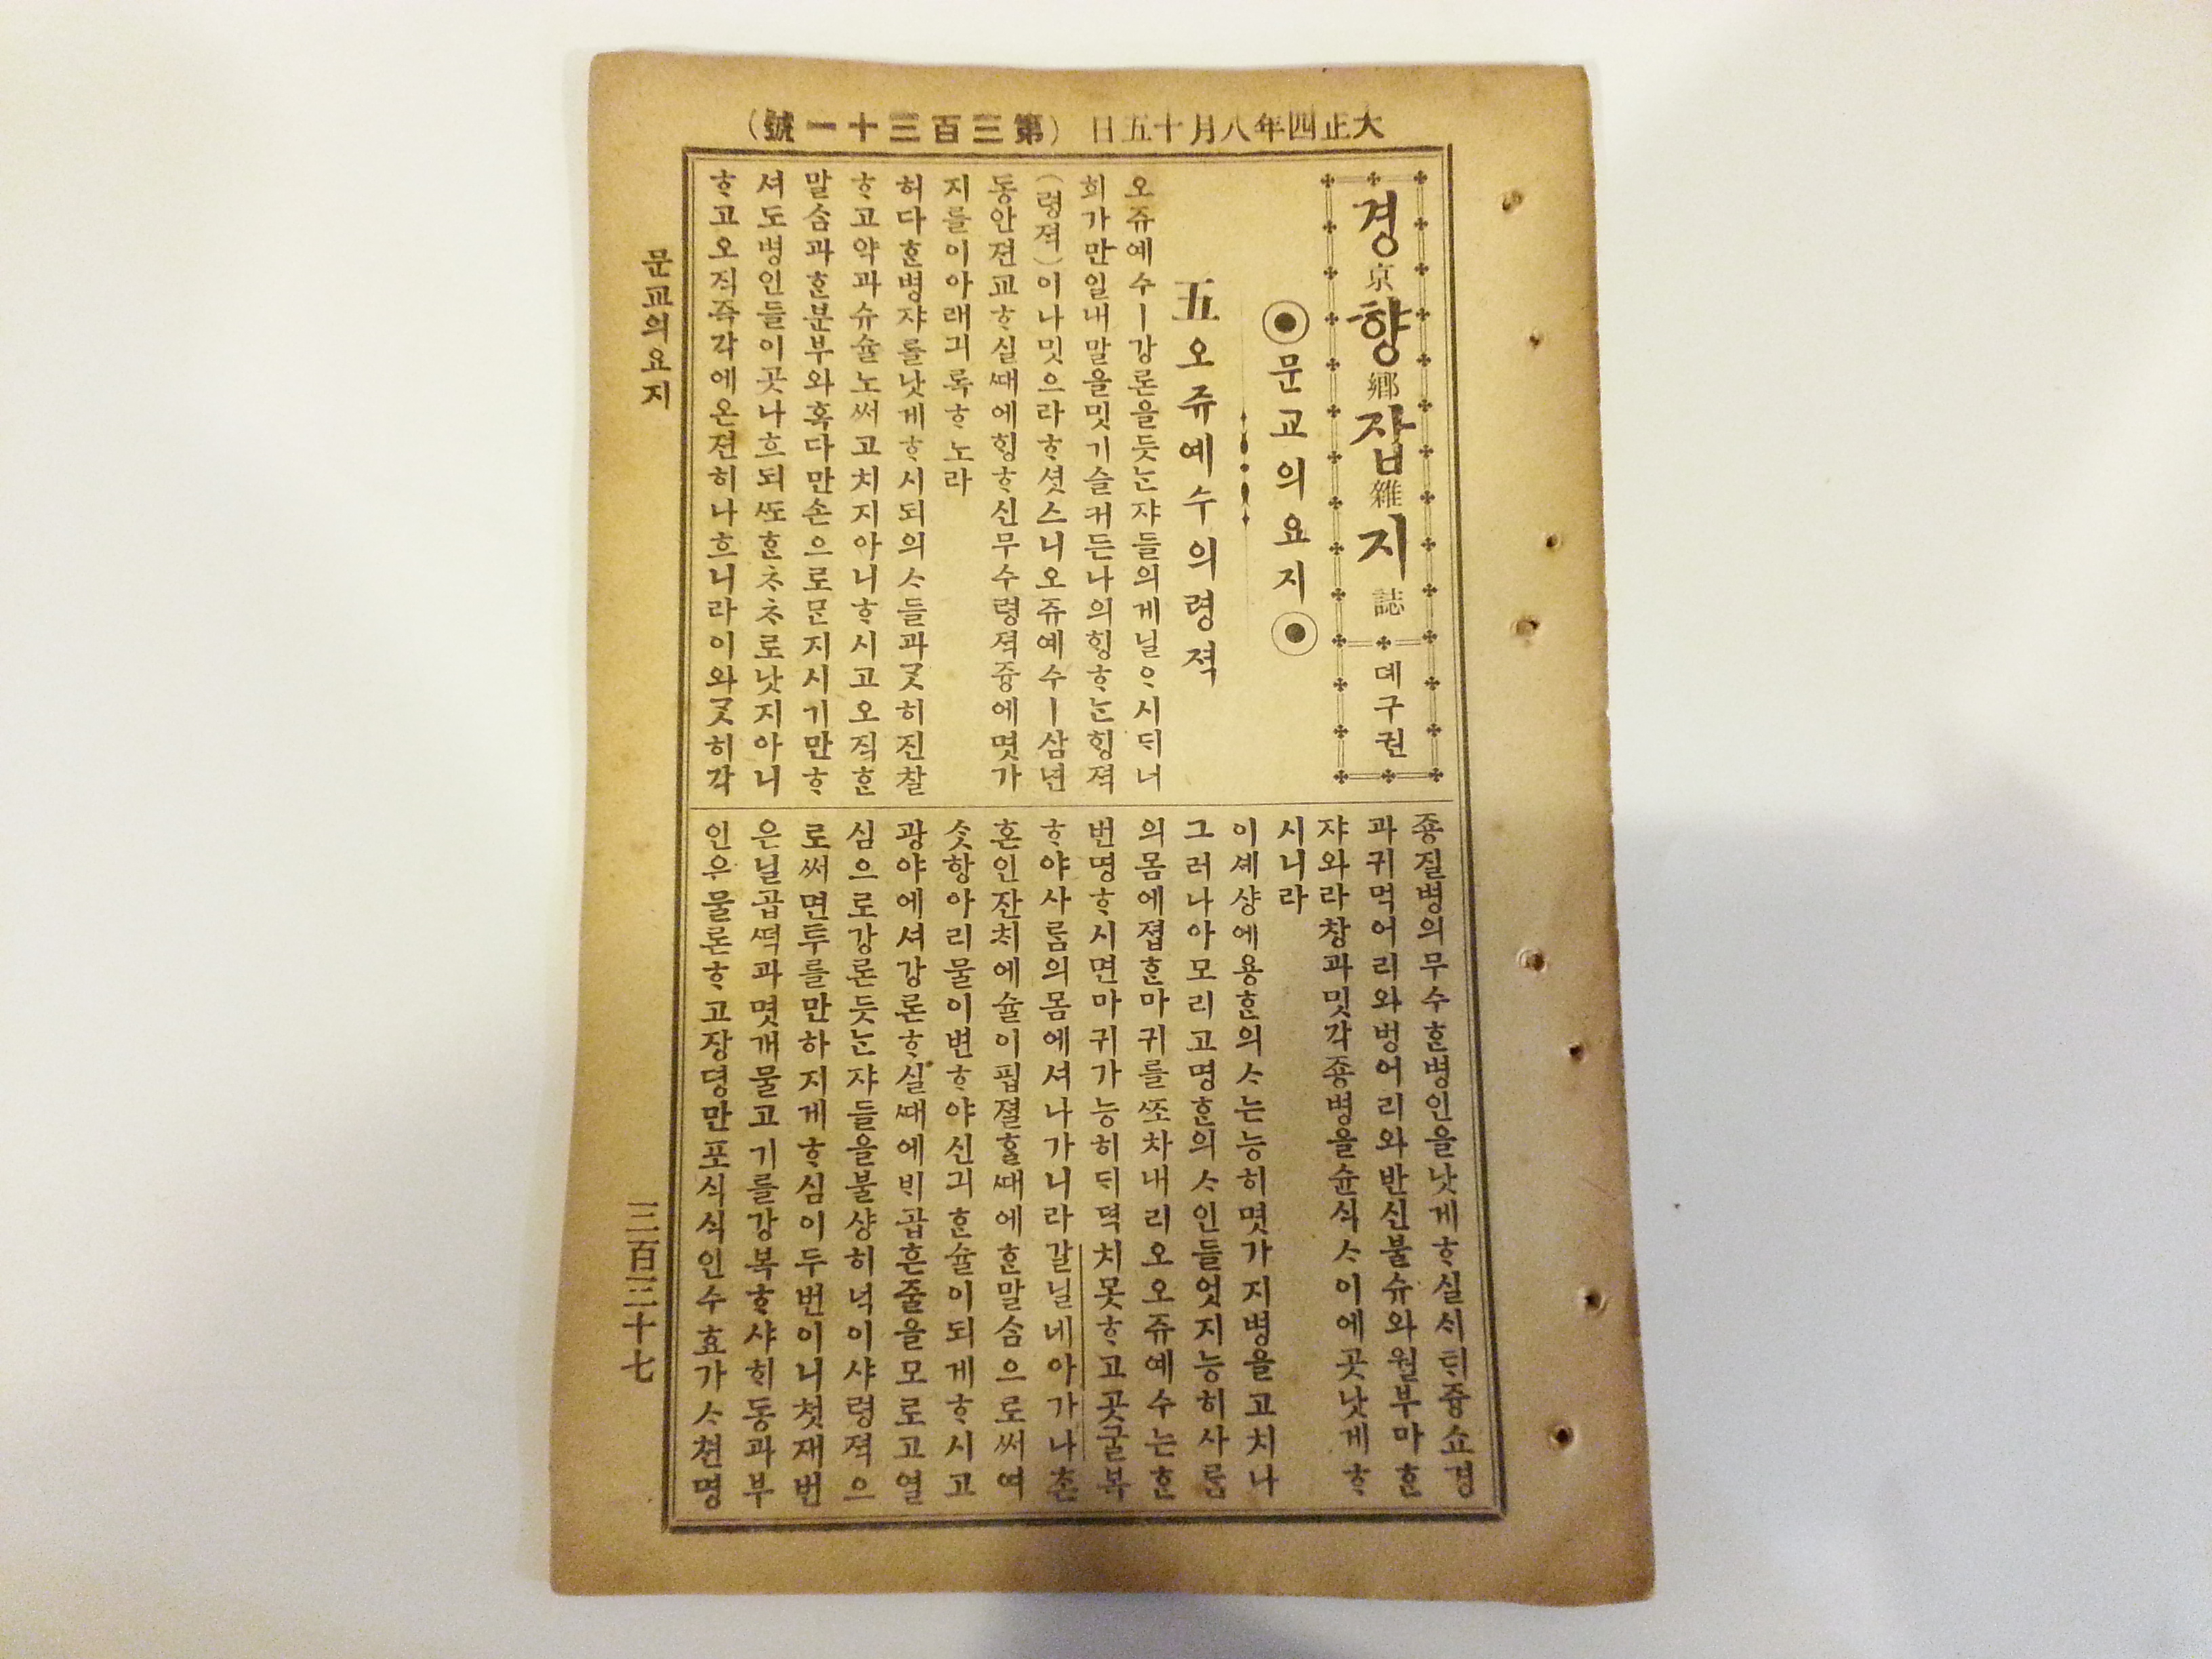 大正四年八月十五日 (第三百三十一號)
경京향鄕잡雜지誌 뎨구권
◉문교의요지◉
五 오쥬예수의령젹
오쥬예수ㅣ강론을듯ᄂᆞᆫ쟈들의게닐ᄋᆞ시ᄃᆡ너
희가만일내말을밋기슬커든나의ᄒᆡᆼᄒᆞᄂᆞᆫᄒᆡᆼ젹
(령젹)이나밋으라ᄒᆞ셧스니오쥬예수ㅣ삼년
동안젼교ᄒᆞ실ᄯᅢ에ᄒᆡᆼᄒᆞ신무수령젹즁에몃가
지를이아래긔록ᄒᆞ노라
허다ᄒᆞᆫ병쟈를낫게ᄒᆞ시되의ᄉᆞ들과ᄀᆞᆺ히진찰
ᄒᆞ고약과슈슐노써고치지아니ᄒᆞ시고오직ᄒᆞᆫ
말ᄉᆞᆷ과ᄒᆞᆫ분부와혹다만손으로문지시기만ᄒᆞ
셔도병인들이곳나흐되ᄯᅩᄒᆞᆫᄎᆞᄎᆞ로낫지아니
ᄒᆞ고오직즉각에온젼히나흐니라이와ᄀᆞᆺ히각
죵질병의무수ᄒᆞᆫ병인을낫게ᄒᆞ실ᄉᆡᄃᆡ즁쇼경
과귀먹어리와벙어리와반신불슈와월부마ᄒᆞᆫ
쟈와라창과밋각죵병을슌식ᄉᆞ이에곳낫게ᄒᆞ
시니라
이셰샹에용ᄒᆞᆫ의ᄉᆞ는능히몃가지병을고치나
그러나아모리고명ᄒᆞᆫ의ᄉᆞ인들엇지능히사ᄅᆞᆷ
의몸에졉ᄒᆞᆫ마귀를ᄶᅩ차내리오오쥬예수는ᄒᆞᆫ
번명ᄒᆞ시면마귀가능히ᄃᆡ덕치못ᄒᆞ고곳굴복
ᄒᆞ야사ᄅᆞᆷ의몸에셔나가니라갈닐네아가나촌
혼인잔ᄎᆡ에슐이핍졀ᄒᆞᆯᄯᅢ에ᄒᆞᆫ말ᄉᆞᆷ으로써여
ᄉᆞᆺ항아리물이변ᄒᆞ야신긔ᄒᆞᆫ슐이되게ᄒᆞ시고
광야에셔강론ᄒᆞ실ᄯᅢ에ᄇᆡ곱흔줄을모로고열
심으로강론듯ᄂᆞᆫ쟈들을불샹히넉이샤령젹으
로써면투를만하지게ᄒᆞ심이두번이니첫재번
은닐곱ᄯᅥᆨ과몃개물고기를강복ᄒᆞ샤ᄒᆡ동과부
인은물론ᄒᆞ고장뎡만포식식인수효가ᄉᆞ쳔명
문교의요지
三百三十七